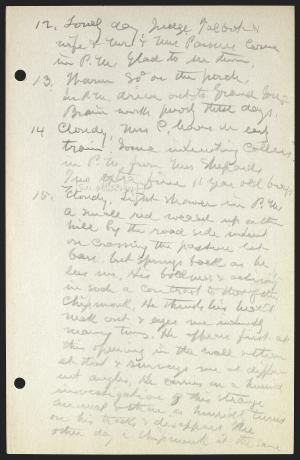 12. Lovely day. Judge Talbot &
wife & Mr & Mrs Parsons come
in P.M. Glad to see them.
13. Warm 80° on the porch.
In P.M. drive out to Grand Gorge
Brain works poorly these days.
14 Cloudy, Mrs C leaves on early
train. Some interesting callers
in P.M. from Mrs Shepards
Two extra fine 11 year old boys
15. Cloudy, light shower in P.M.
A small red weasel up on the
hill by the road side
on crossing the pasture
bars, but springs back as he
sees me. His boldness & activity
in such a contrast to that of the
Chipmunk. He thrusts his head &
neck out & eyes me
many times. He appears first at
this opening in the wall, then
at that & surveys me at different
angles. He carries on a
investigation of this strange
animal & then as hurriedly turns
on his tracks & disappears. The
other day a chipmunk at the same